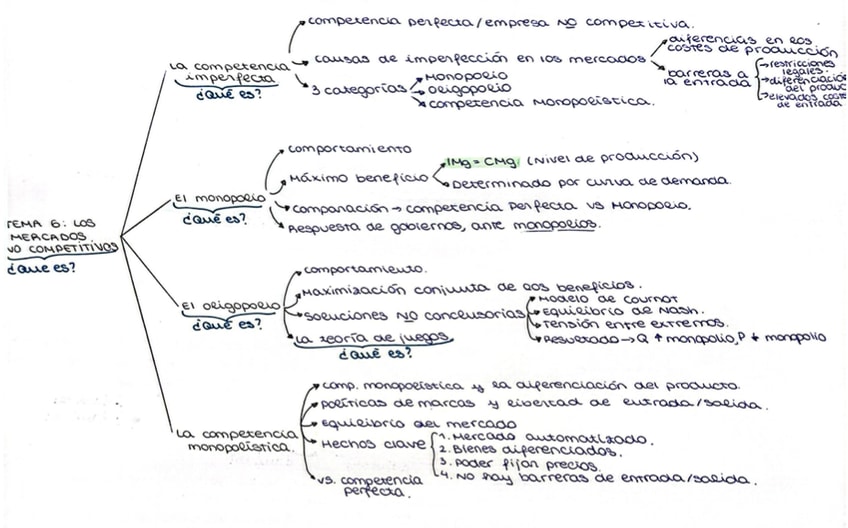 TEMA 6: LOS
MERCADOS
NO COMPETITIVOS
¿Qué es?
La competencia
imperfecta
¿Qué es?
competencia perfecta/empresa NO competitiva.
causas de imperfección en los mercados
diferencias en los
costes de producción
barreras a
la entrada
restricciones
legales.
diferenciación
del produc
elevados costes
de entrada
3 categorías
Monopolio
Oligopolio
competencia Monopolística.
El monopolio
¿Qué es?
comportamiento
Máximo beneficio
IMg = CMg (Nivel de producción)
Determinado por curva de demanda.
Comparación → competencia perfecta vs Monopolio.
Respuesta de gobiernos, ante monopolios.
El oligopolio
¿Qué es?
comportamiento.
Maximización conjunta de los beneficios.
soluciones NO
Modelo de Cournot
Equilibrio de Nash.
Tensión entre extremos.
Resultado → Q ↑ monopolio, P ↓ monopolio
La teoría de juegos
¿Qué es?
La competencia
monopolística.
comp. monopolística y la diferenciación del producto.
políticas de marcas y libertad de entrada/salida.
Equilibrio del mercado
Hechos clave
1. Mercado automatizado.
2. Bienes diferenciados.
3. Poder fijar precios.
4. No hay barreras de entrada/salida.
vs. competencia
perfecta.